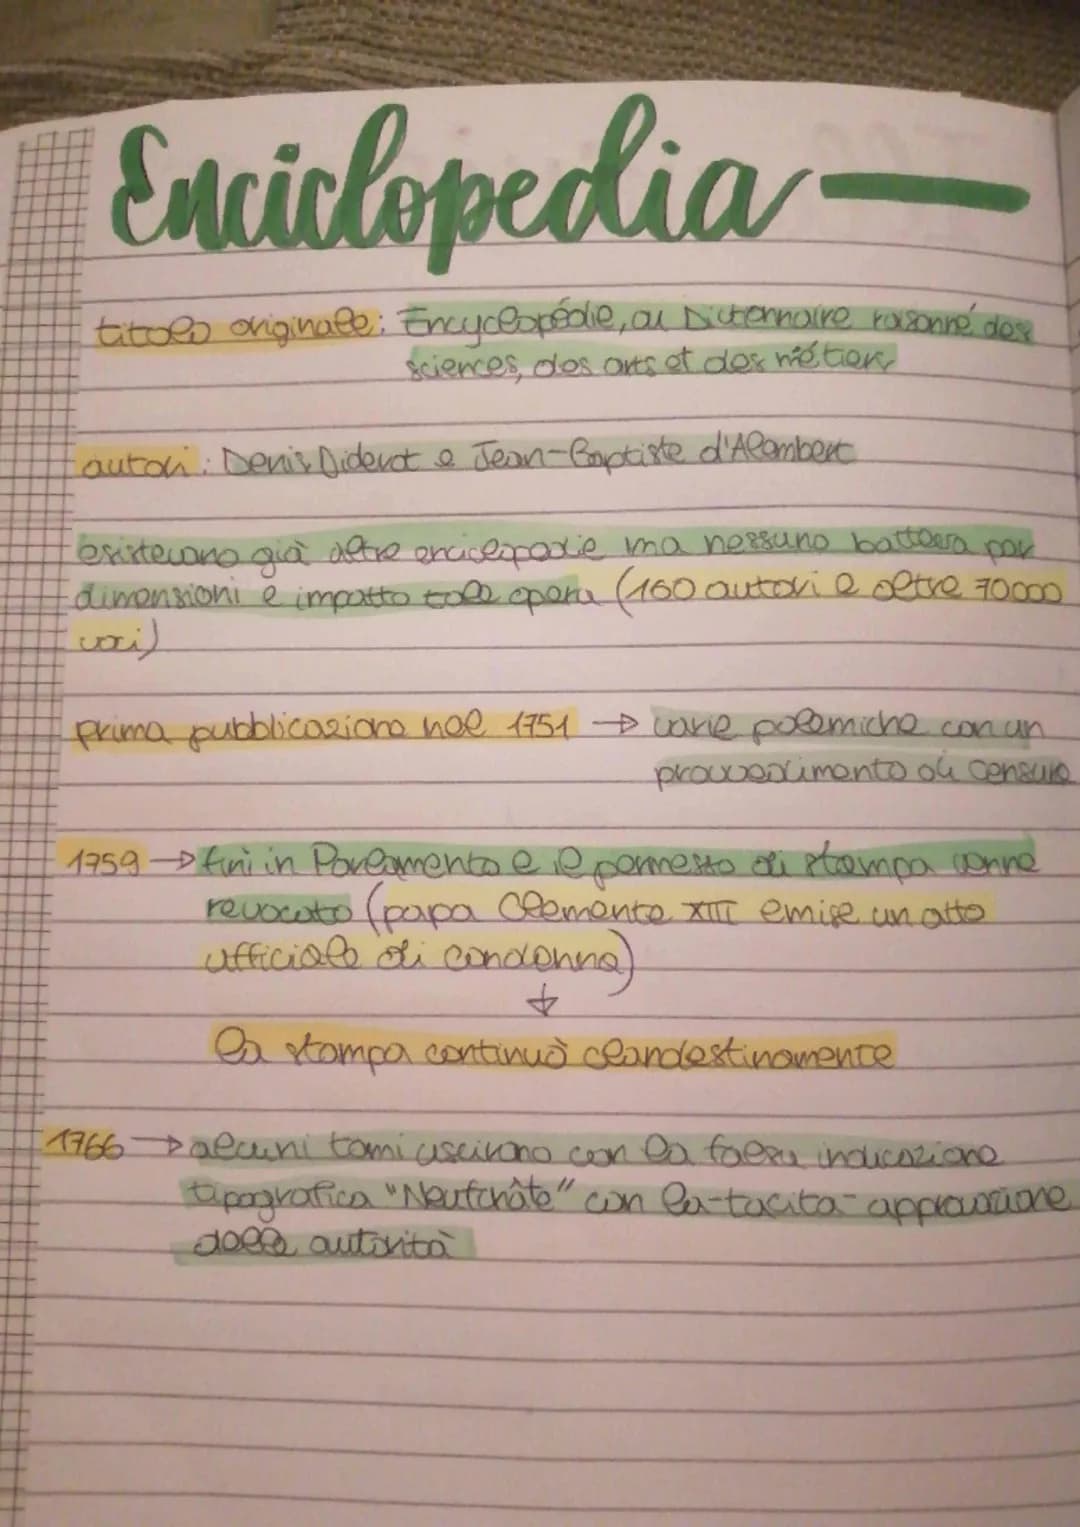 Enciclopedia
titolo originale: Encyclopédie, ou Dictionnaire raisonné des
sciences, des arts et des métiers
autori: Denis Diderot e Jean-Baptiste d'Alembert
esistevano già altre enciclopedie ma nessuno batteva per
dimensioni e impatto tale opera (160 autori e oltre 70000
voci)
prima pubblicazione nel 1751 → varie polemiche con un
provvedimento di censura
1759 → finì in Parlamento e il permesso di stampa venne
revocato (papa Clemente XIII emise un atto
ufficiale di condanna)
↓
la stampa continuò clandestinamente
1766 → alcuni tomi uscirono con la falsa indicazione
tipografica "Neutchâte" con la-tacita-approvazione
delle autorità